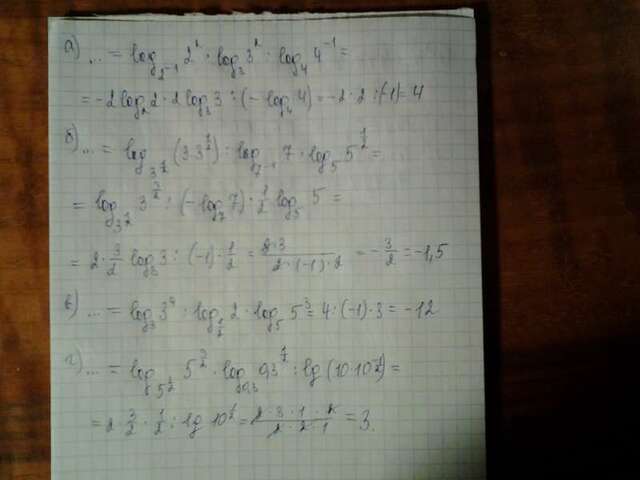 а) ... = log_{2^{-1}} 2^2 · log_3 3^2 : log_4 4^{-1} =
= -2 log_2 2 · 2 log_3 3 : (- log_4 4) = -2 · 2 : (-1) = 4
б) ... = log_{3^{1/2}} (3·3^{1/2}) : log_{7^{-1}} 7 · log_5 5^{1/2} =
= log_{3^{1/2}} 3^{3/2} : (- log_7 7) · 1/2 log_5 5 =
= 2 · 3/2 log_3 3 : (-1) · 1/2 = 2·3 / 2·(-1)·2 = -3/2 = -1,5
в) ... = log_3 3^4 : log_{1/2} 2 · log_5 5^3 = 4 : (-1) · 3 = -12
г) ... = log_{5^{1/2}} 5^{3/2} · log_{0,3} 0,3^{1/2} : lg (10·10^{-1/2}) =
= 2 · 3/2 · 1/2 : lg 10^{1/2} = 2 · 3 · 1 · 2 / 2 · 2 · 1 = 3.